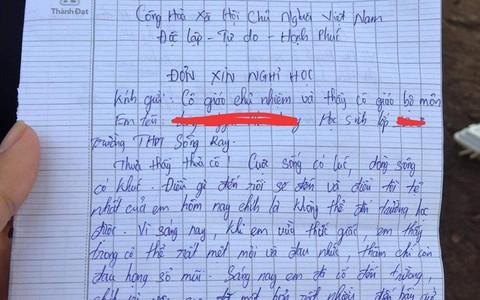 Thành Đạt
Cộng Hòa Xã Hội Chủ Nghĩa Việt Nam
Độc lập - Tự do - Hạnh Phúc
ĐƠN XIN NGHỈ HỌC
Kính gửi: Cô giáo chủ nhiệm và thầy cô giáo bộ môn
Em tên: Học sinh lớp
Trường THPT Sông Ray.
Thưa thầy thưa cô! Cuộc sống có lúc, dòng sông
có khúc. Điều gì đến rồi sẽ đến và điều tồi tệ
nhất của em hôm nay chính là không thể đến trường học
được. Vì sáng nay, khi em vừa thức giấc, em thấy
trong cơ thể rất mệt mỏi và đau nhức, thậm chí còn
đau họng sổ mũi. Sáng nay em đã cố đến trường,